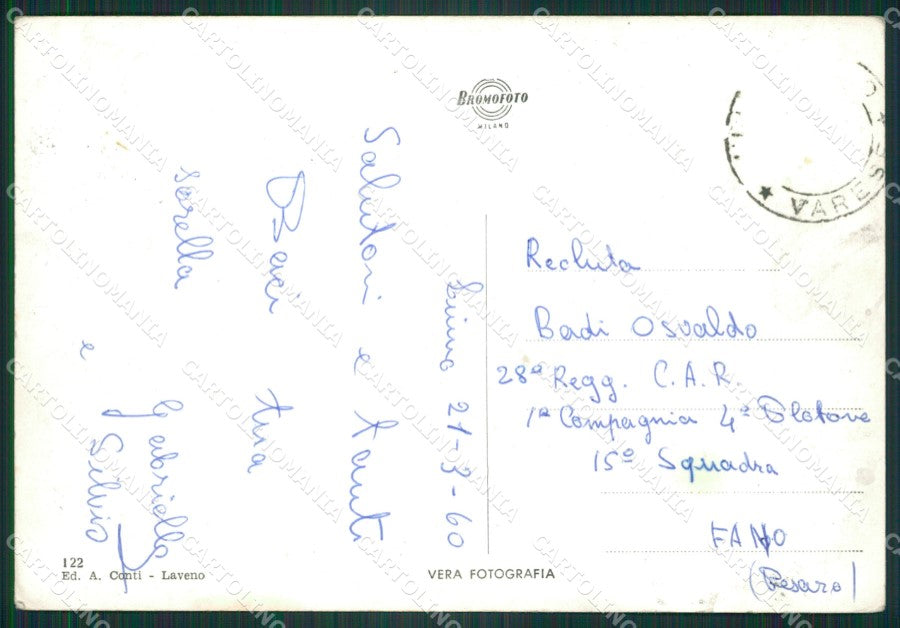 BROMOFOTO
MILANO
VARESE
Luino 21-3-60
Salutoni e tanti
Baci tua
sorella Gabriella
e Silvio
Recluta
Badi Osvaldo
28º Regg. C.A.R.
1ª Compagnia 4º Plotone
15ª Squadra
FANO
(Pesaro)
122
Ed. A. Conti - Laveno
VERA FOTOGRAFIA
CARTOLINOMANIA